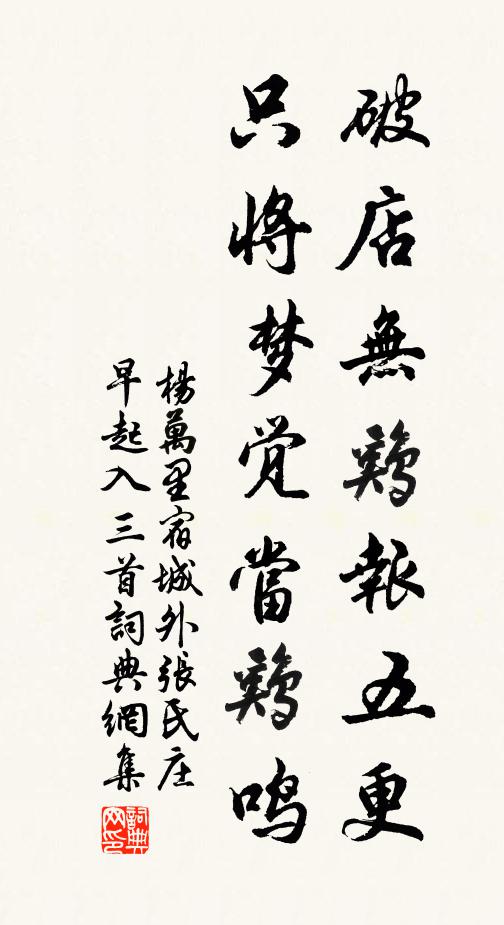 破店無鷄報五更
只將梦覺當鷄鳴
楊萬里宿城外張氏庄
早起入三首詞典網集
詞典
网印